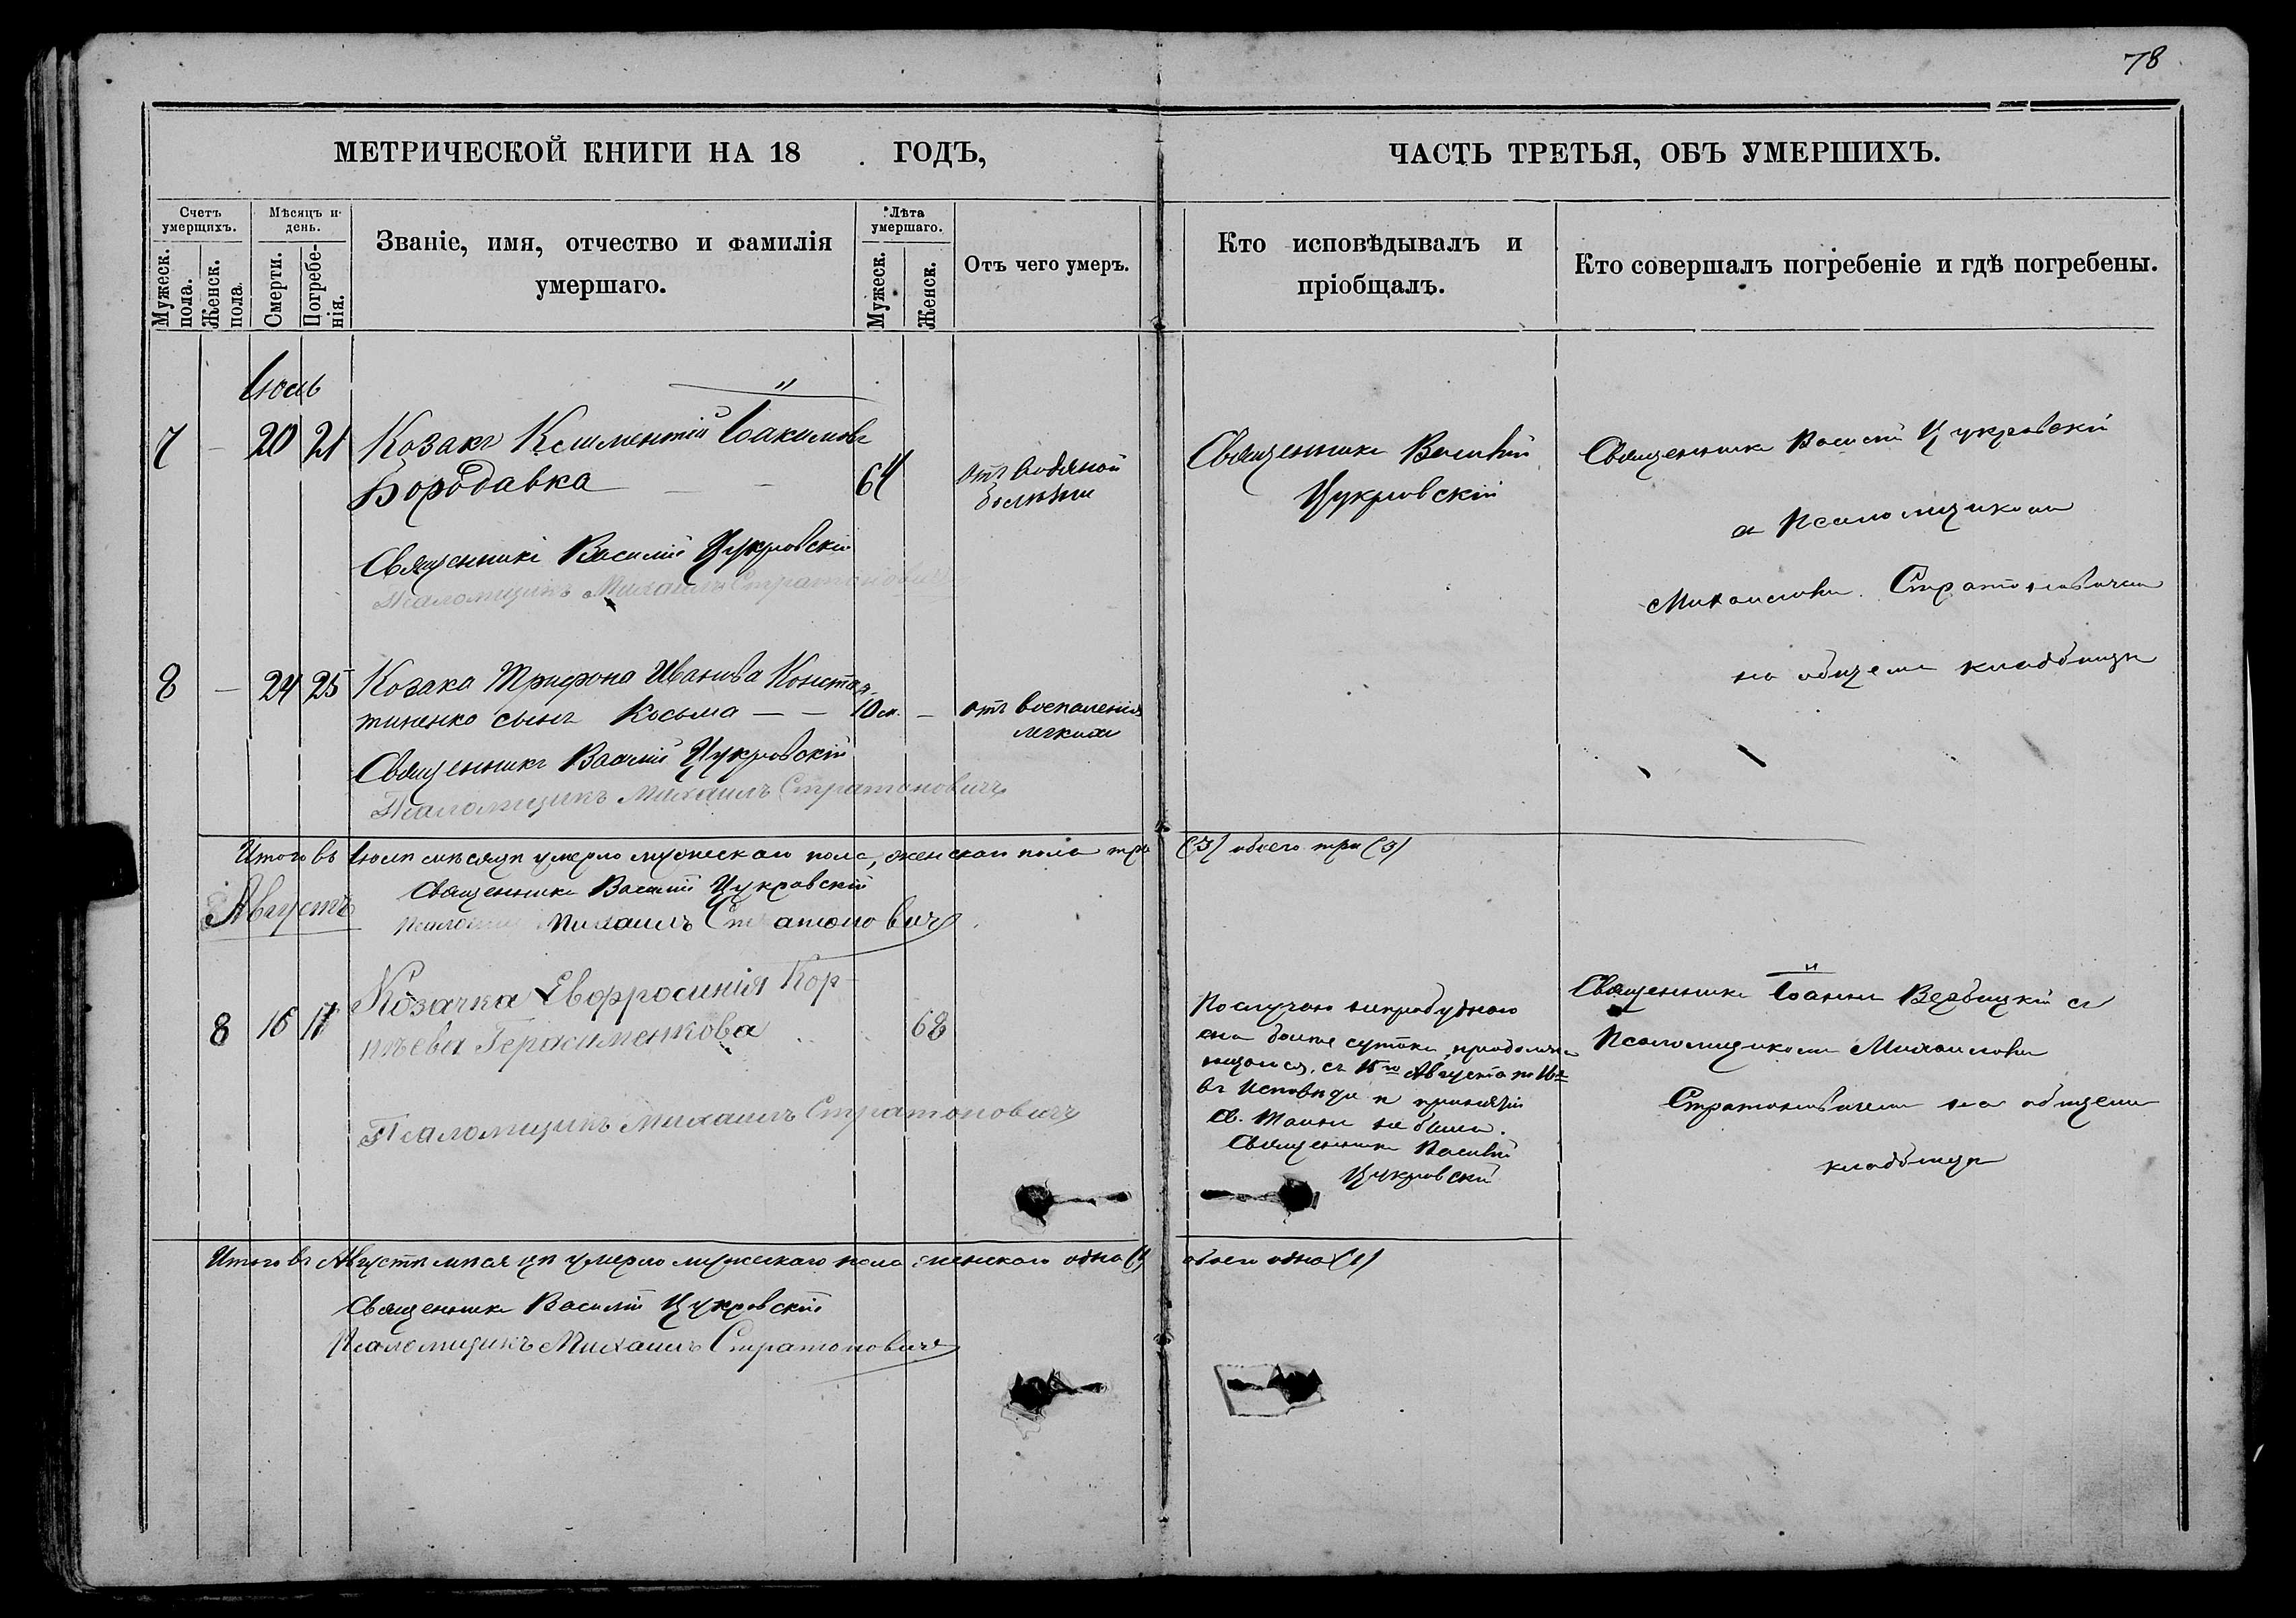 78
МЕТРИЧЕСКОЙ КНИГИ НА 18 ГОДЪ,
ЧАСТЬ ТРЕТЬЯ, ОБЪ УМЕРШИХЪ.
Счетъ умершихъ.
Мужеск. пола.
Женск. пола.
Мѣсяцъ и день.
Смерти.
Погребе-
нія.
Званіе, имя, отчество и фамилія
умершаго.
Лѣта умершаго.
Мужеск.
Женск.
Отъ чего умеръ.
Кто исповѣдывалъ и
пріобщалъ.
Кто совершалъ погребеніе и гдѣ погребены.
Іюль
7 – 20 21 Козакъ Климентій Іакимовъ
Бородавка — — 64
отъ водяной
болѣзни
Священникъ Василій
Цукровскій
Священникъ Василій Цукровскій
съ Псаломщикомъ
Михаиломъ Стратоновичемъ
на общемъ кладбищѣ
Священникъ Василій Цукровскій
Псаломщикъ Михаилъ Стратоновичъ
8 – 24 25 Козака Трифона Иванова Констан-
тиненко сынъ Косьма — — 10 м. –
отъ воспаленія
легкихъ
Священникъ Василій Цукровскій
Псаломщикъ Михаилъ Стратоновичъ
Итого въ Іюлѣ мѣсяцѣ умерло мужескаго пола, женскаго пола три (3) обоего три (3)
Священникъ Василій Цукровскій
Михаилъ Стратоновичъ
Августъ
8 16 17 Козачка Евфросинія Кор-
нѣева Герасименкова 68
По случаю непробуднаго
сна болѣе сутокъ, продолжа
ющагося, съ 15го Августа по 16е
въ Исповѣди и принятіи
Св. Таинъ не была.
Священникъ Василій
Цукровскій
Священникъ Іоаннъ Вербицкій съ
Псаломщикомъ Михаиломъ
Стратоновичемъ на общемъ
кладбищѣ
Псаломщикъ Михаилъ Стратоновичъ
Итого въ Августѣ мѣсяцѣ умерло мужескаго пола женскаго одна (1) обоего одна (1)
Священникъ Василій Цукровскій
Псаломщикъ Михаилъ Стратоновичъ